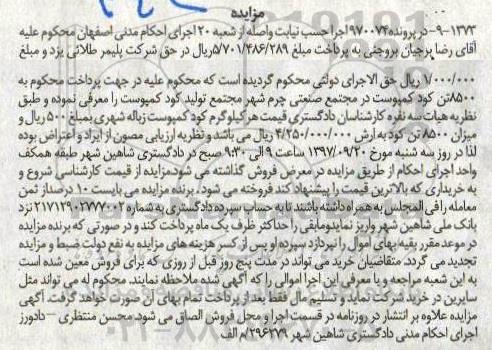 مزایده
۹-۱۳۷۳- در پرونده ۹۷۰۰۷۴ اجرا حسب نیابت واصله از شعبه ۲۰ اجرای احکام مدنی اصفهان محکوم علیه
آقای رضا برجیان بروجنی به پرداخت مبلغ ۵/۷۰۱/۴۸۶/۲۸۹ریال در حق شرکت پلیمر طلائی یزد و مبلغ
۱/۰۰۰/۰۰۰ ریال حق الاجرای دولتی محکوم گردیده است که محکوم علیه در جهت پرداخت محکوم به
۸۵۰۰تن کود کمپوست در مجتمع صنعتی چرم شهر مجتمع تولید کود کمپوست را معرفی نموده و طبق
نظریه هیات سه نفره کارشناسان دادگستری قیمت هر کیلوگرم کود کمپوست زباله شهری بمبلغ ۵۰۰ ریال و
میزان ۸۵۰۰ تن کود به ارش ۴/۲۵۰/۰۰۰/۰۰۰ ریال می باشد و نظریه ارزیابی مصون از ایراد و اعتراض بوده
لذا در روز سه شنبه مورخ ۱۳۹۷/۰۹/۲۰ ساعت ۹ الی ۹:۳۰ صبح در دادگستری شاهین شهر طبقه همکف
واحد اجرای احکام از طریق مزایده در معرض فروش گذاشته می شود.مزایده از قیمت کارشناسی شروع و
به خریداری که بالاترین قیمت را پیشنهاد کند فروخته می شود. برنده مزایده می بایست ۱۰ درصداز ثمن
معامله را فی المجلس به همراه داشته باشند تا به حساب سپرده دادگستری به شماره ۲۱۷۱۲۹۰۲۷۷۰۰۲ نزد
بانک ملی شاهین شهر واریز نمایدومابقی را حداکثر ظرف یک ماه پرداخت کند و در صورتی که برنده مزایده
در موعد مقرر بقیه بهای اموال را نپردازد سپرده او پس از کسر هزینه های مزایده به نفع دولت ضبط و مزایده
تجدید می گردد. متقاضیان خرید می تواند در مدت پنج روز قبل از روزی که برای فروش معین شده است
به این شعبه مراجعه و با معرفی این اجرا اموالی را که آگهی شده ملاحظه نمایند. محکوم له می تواند مثل
سایرین در خرید شرکت نماید و تسلیم مال فقط بعد از پرداخت تمام بهای آن صورت خواهد گرفت. آگهی
مزایده علاوه بر انتشار در روزنامه در قسمت اجرا و محل فروش الصاق می شود. محسن منتظری - دادورز
اجرای احکام مدنی دادگستری شاهین شهر ۲۹۶۳۷۹/م الف